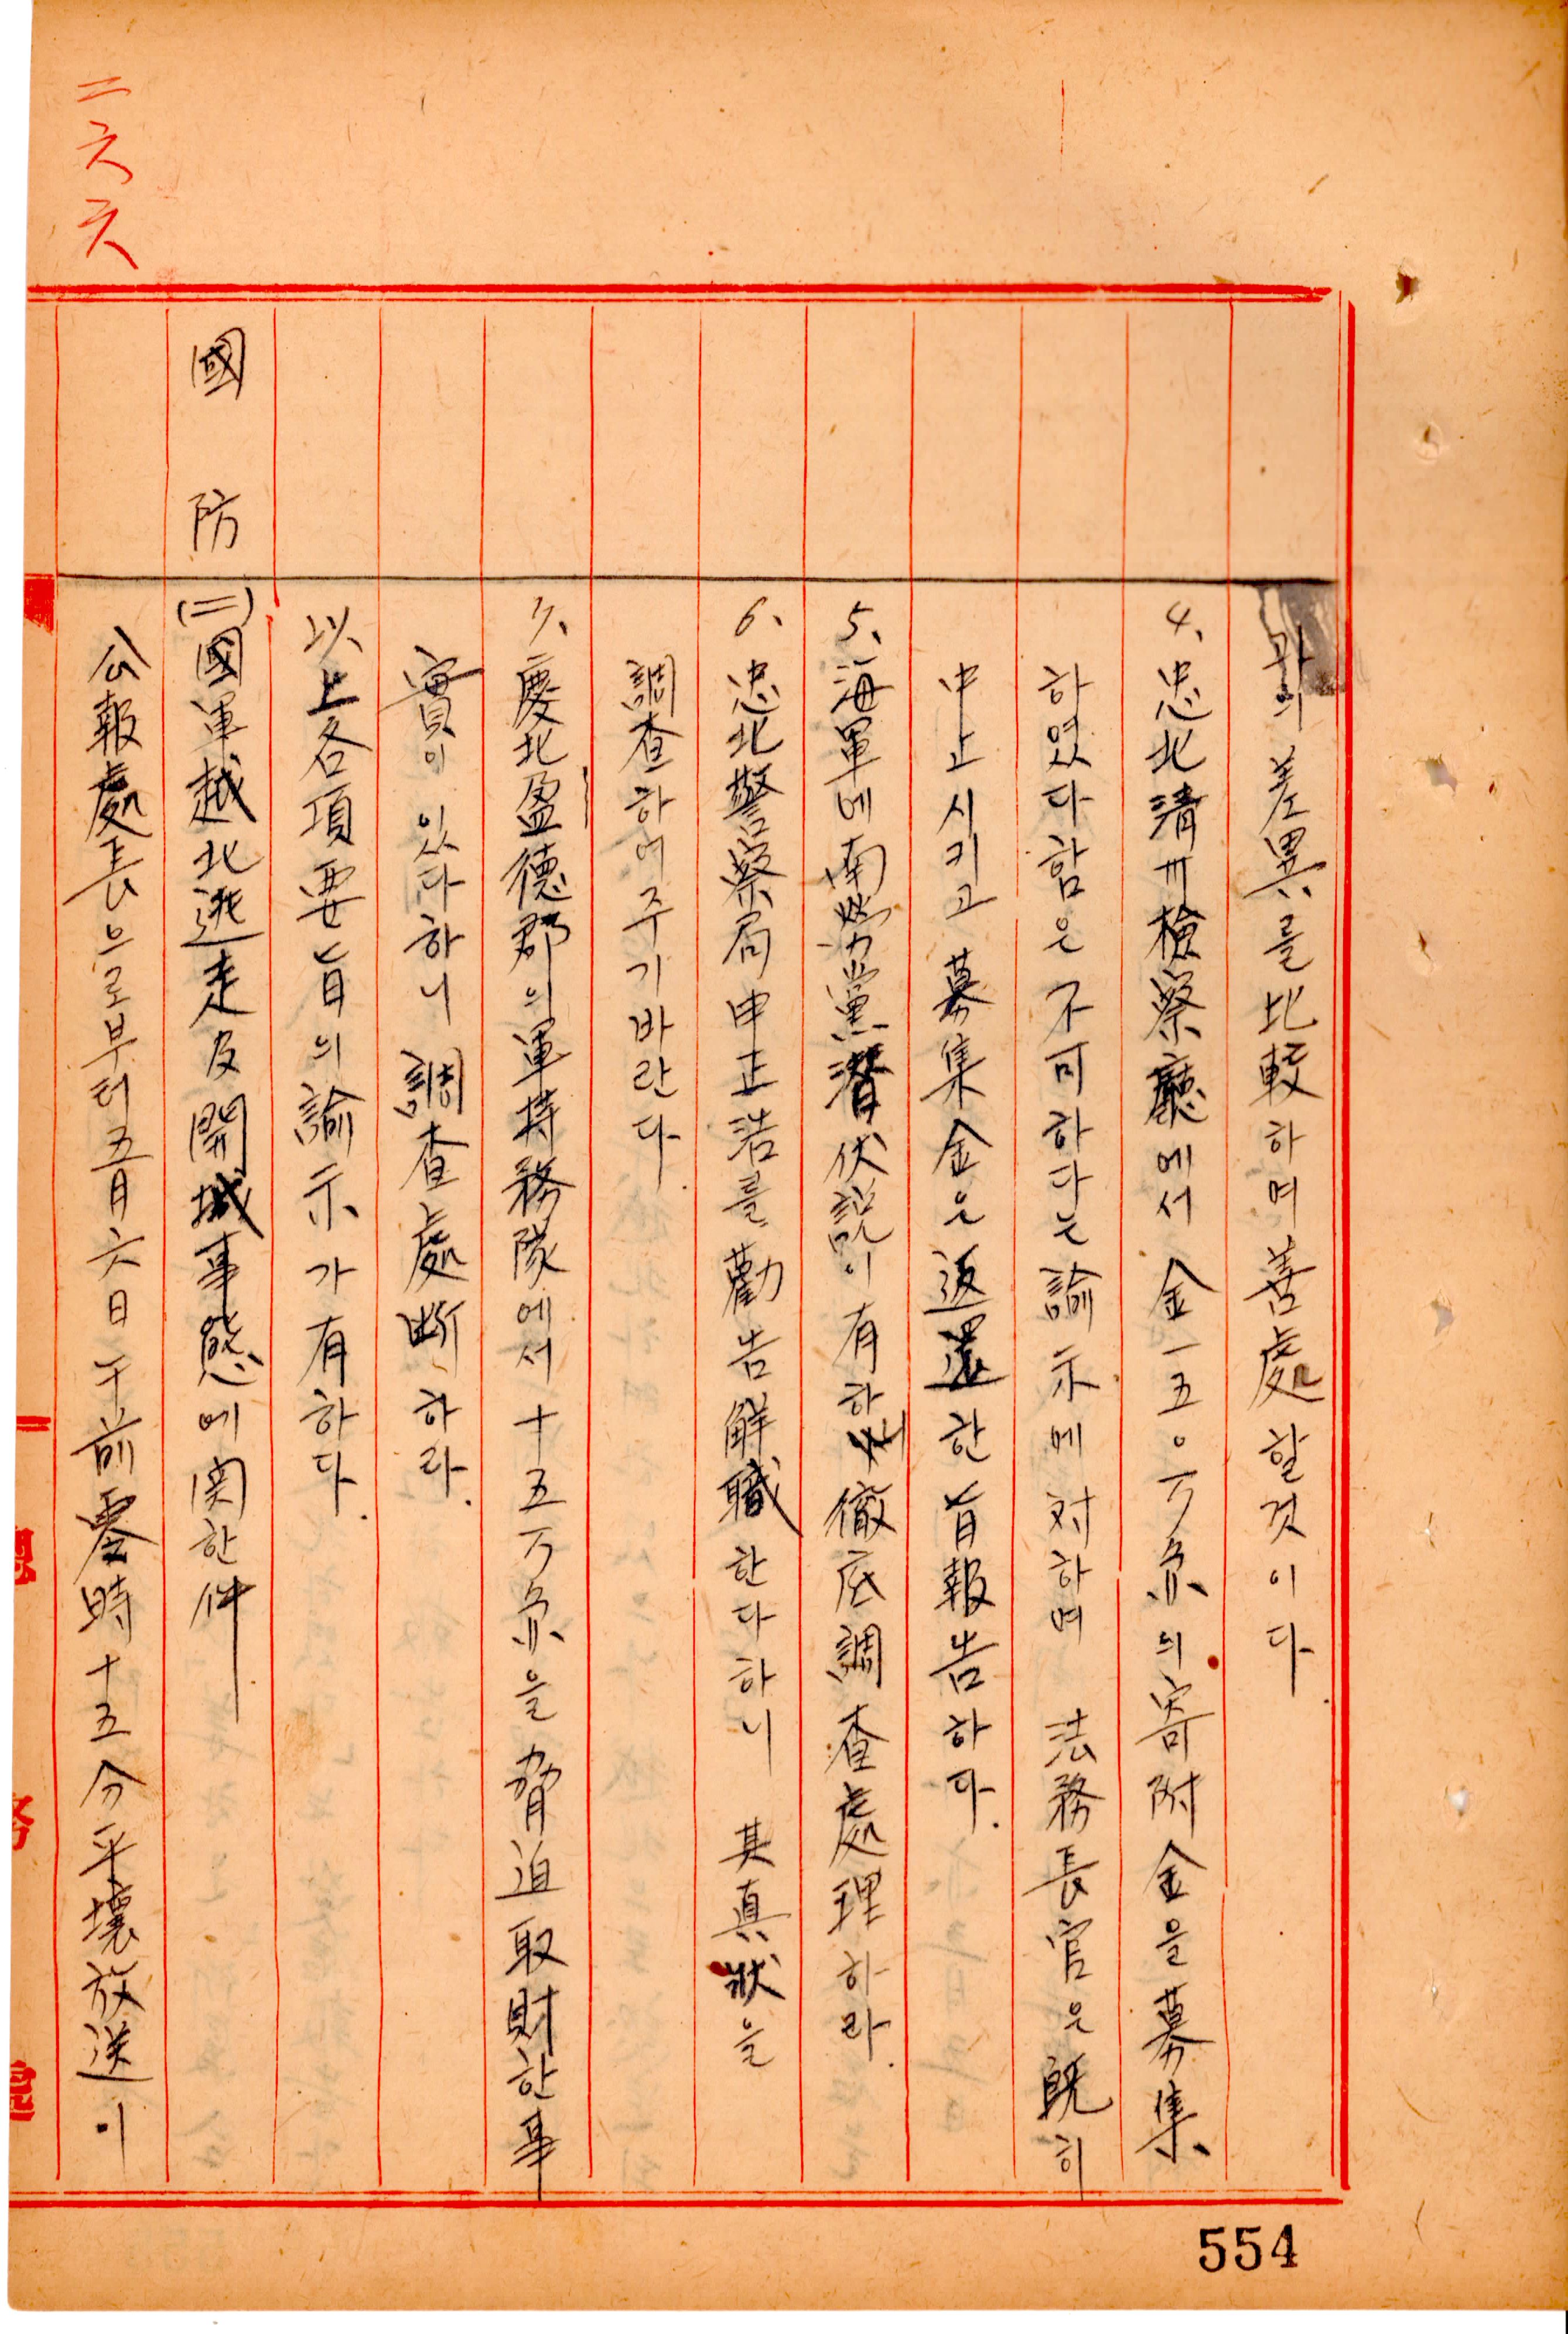 과의 差異를 比較하며 善處할것이다.
4、忠北淸州檢察廳에서 金一五〇万弗의 寄附金을 募集
하였다함은 不可하다는 諭示에 对하며 法務長官은 既히
中止시키고 募集金은 返還한 旨 報告하다.
5、海軍에 南勞黨潛伏説이 有하니 徹底調査處理하라.
6、忠北警察局 申正浩를 勸告解職한다하니 其真狀을
調査하여주기바란다.
7、慶北盈德郡의 軍特務隊에서 十五万弗을 脅迫取財한 事
實이 있다하니 調査處断하라.
以上各項要旨의 諭示가 有하다.
國防
(二)國軍越北逃走及開城事態에 関한件
公報處長으로부터 五月六日午前零時十五分平壤放送이
二六六
554